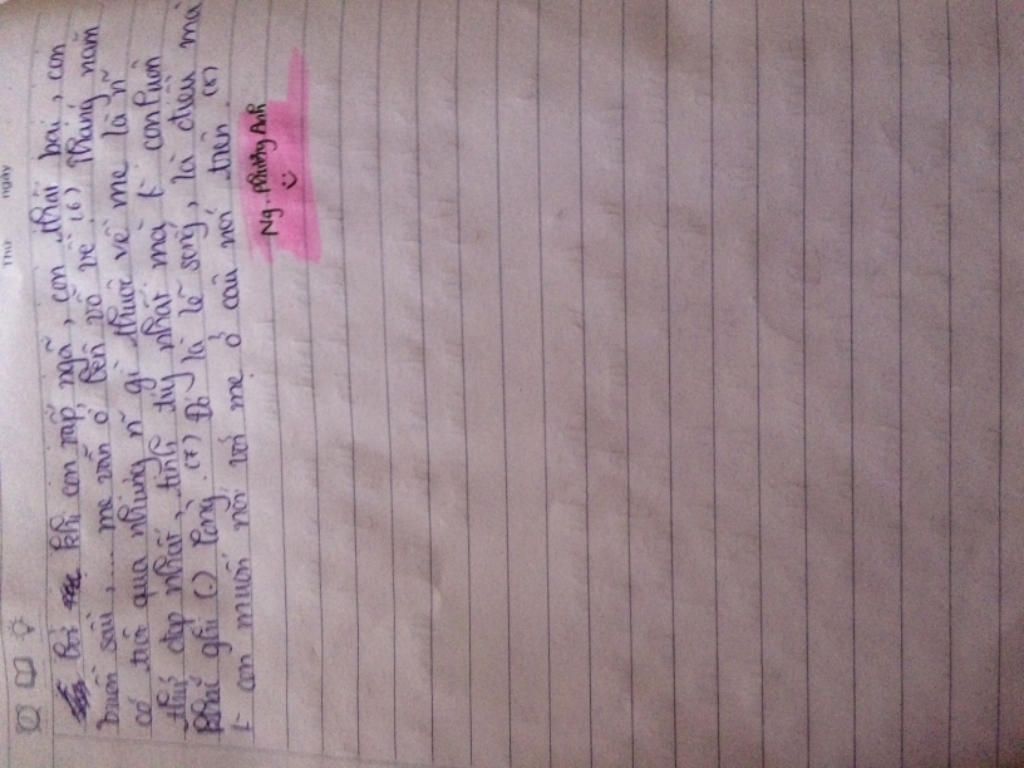 Thứ ngày
Bởi khi con mập, ngã, con thất bại, con
buồn sầu,.... mẹ vẫn ở bên vỗ về (6) Tháng năm
có trôi qua nhưng ~n gì thuộc về mẹ là ~n
thứ đẹp nhất, tinh túy nhất mà t con luôn
phải ghi () lòng. (7) Đó là lẽ sống, là điều mà
t con muốn nói với mẹ ở câu nói trên. (8)
Ng. Phương Anh